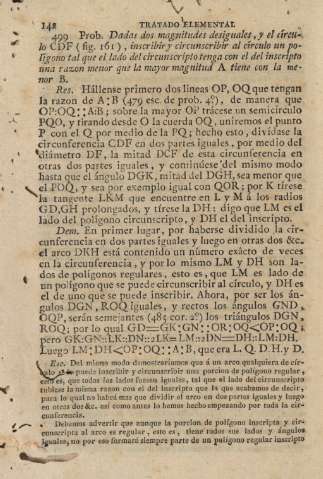 142 TRATADO ELEMENTAL
499 Prob. Dadas dos magnitudes desiguales, y el círcu-
lo CDF (fig. 161), inscribir y circunscribir al círculo un po-
lígono tal que el lado del circunscripto tenga con el del inscripto
una razon menor que la mayor magnitud A tiene con la me-
nor B.
Res. Hállense primero dos lineas OP, OQ que tengan
la razon de A:B (479 esc. de prob. 4º), de manera que
OP:OQ::A:B; sobre la mayor OP trácese un semicírculo
PQO, y tirando desde O la cuerda OQ, uniremos el punto
P con el Q por medio de la PQ; hecho esto, divídase la
circunferencia CDF en dos partes iguales, por medio del
diámetro DF, la mitad DCF de esta circunferencia en
otras dos partes iguales, y continúese del mismo modo
hasta que el ángulo DGK, mitad del DGH, sea menor que
el POQ, y sea por exemplo igual con QOR; por K tírese
la tangente LKM que encuentre en L y M á los radios
GD,GH prolongados, y tírese la DH: digo que LM es el
lado del polígono circunscripto, y DH el del inscripto.
Dem. En primer lugar, por haberse dividido la cir-
cunferencia en dos partes iguales y luego en otras dos &c.
el arco DKH está contenido un número exâcto de veces
en la circunferencia, y por lo mismo LM y DH son la-
dos de polígonos regulares, esto es, que LM es lado de
un polígono que se puede circunscribir al círculo, y DH es
el de uno que se puede inscribir. Ahora, por ser los án-
gulos DGN, ROQ iguales, y rectos los ángulos GND,
OQP, serán semejantes (485 cor. 2º) los triángulos DGN,
ROQ; por lo qual GD=GK:GN::OR:OQ<OP:OQ;
pero GK:GN::LK:DN::2LK=LM:2DN=DH::LM:DH.
Luego LM:DH<OP:OQ::A:B, que era L. Q. D. H. y D.
Esc. Del mismo modo demostrariamos que á un arco qualquiera de cír-
culo se puede inscribir y circunscribir una porcion de polígono regular,
esto es, que todos los lados fuesen iguales, tal que el lado del circunscripto
tubiese la misma razon con el del inscripto que la que acabamos de decir;
para lo qual no habrá mas que dividir el arco en dos partes iguales y luego
en otras dos &c. así como antes lo hemos hecho empezando por toda la cir-
cunferencia.
Debemos advertir que aunque la porcion de polígono inscripta y cir-
cunscripta al arco es regular, esto es, tiene todos sus lados y ángulos
iguales, no por eso formará siempre parte de un polígono regular inscripto